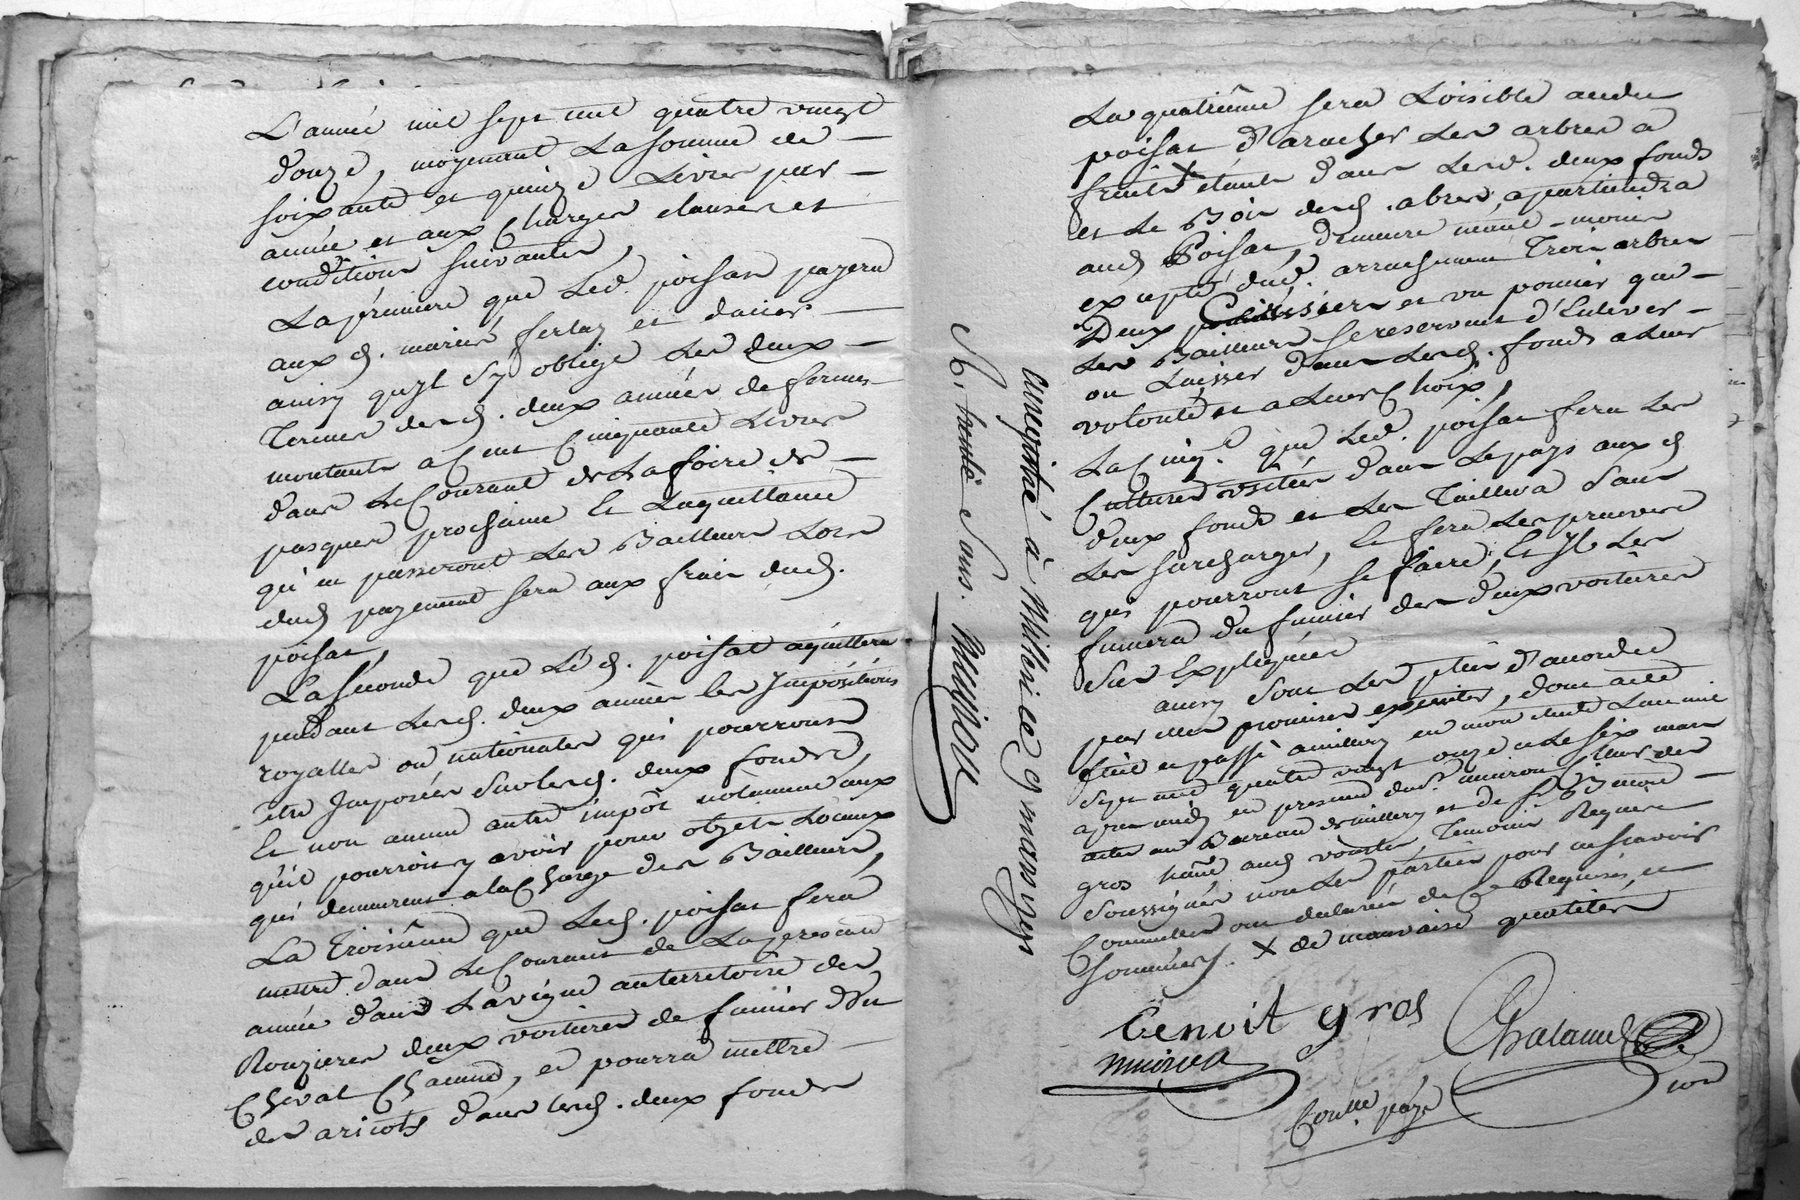 L'année mil sept cent quatre vingt
douze, moyenant La somme de
soixante et quinze Livres par
année et aux Charges clauses et
conditions suivantes,
La première que Led. poisat payera
aux d. mariés ferlay et
ainsy qu'yl s'y oblige Les deux
Termes desd. deux années de fermes
montants a Cent Cinquante Livres
dans le Courant de La foire de
pasques prochaine Et La quittance
qu'en passeront Les Bailleurs Lors
dud. payement sera aux frais dud.
poisat,
La seconde que Le d. poisat aquittera
pendant Lesd. deux années les Impositions
royalles ou nationales qui pourront
etre Imposées sur lesd. deux fonds,
Et non aucun autre impôt notamment aux
qu'il pourroit y avoir pour objets Locaux
qui demeurent a la Charge des Bailleurs,
La Troisième que Led. poisat fera
mettre dans Le Courant de La presente
année dans La vigne au territoire des
Rouzieres deux voitures de fumier d'un
Cheval Chacune, et pourra mettre
des aricots dans lesd. deux fonds
La quatrième sera Loisible audit
poisat d'aracher Les arbres a
fruits X étants dans Lesd. deux fonds
et Le Bois desd. abres apartiendra
aud. Poisat, demeure néanmoins
excepté dud. arrachement Trois arbres
Deux Cerisiers et un pomier que
Les Bailleurs se reservent d'Enlever
ou Laisser dans Lesd. fonds a Leur
volonté et a Leur Choix,
La Cinq.e que Led. poisat fera Les
Cultures usitées dans Le pays aux d.
deux fonds et Les Taillera sans
Les surcharger, Et fera Les preuves
qui pourront se faire, Et Il Les
fumera du fumier des deux voitures
sus Expliquées
ainsy sont Les parties d'accord
par elles promises executer, dont acte
fait et passé a millery en mon étude L'an mil
sept cent quatre vingt onze et Le six mars
apres midy en presence du sr.
actes au Bureau de millery et de sr. Benoit
gros Témoins Requis
soussignés non Les parties pour ne sçavoir
Comme elles ont déclaré de Ce Requises, et
sommées. X de mauvaise qualités
Benoit gros
Coulle payé
enregistré à Millery ce 9 mars 1791
R. trente Sous.